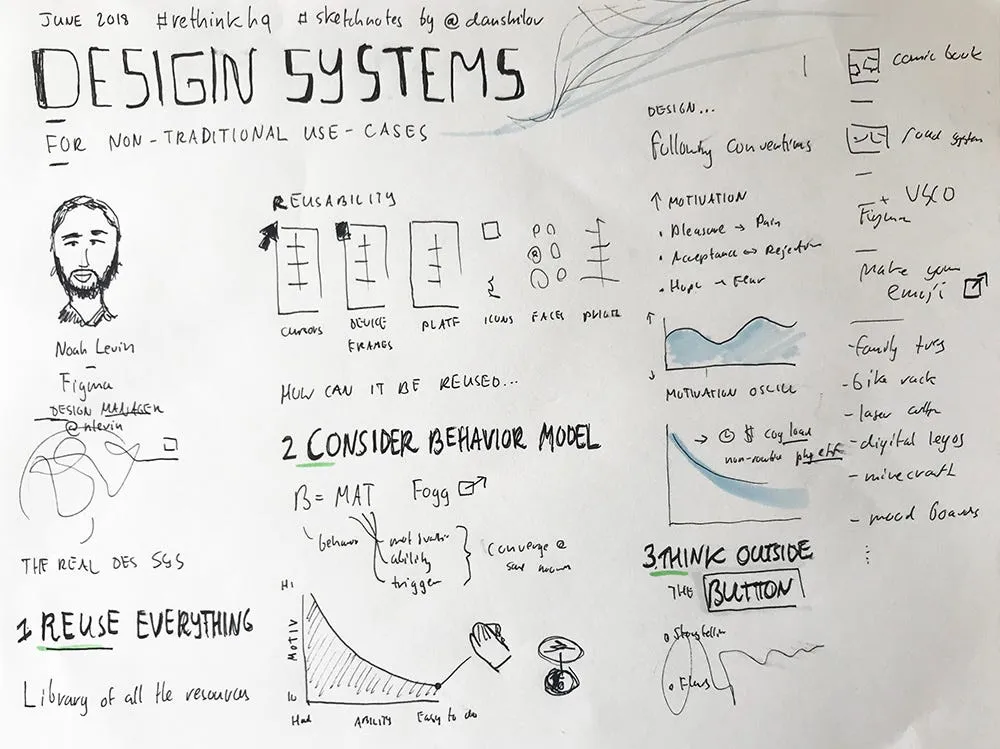 JUNE 2018 #rethinkhq #sketchnotes by @danshilov
DESIGN SYSTEMS
FOR NON-TRADITIONAL USE-CASES
Noah Levin
Figma
DESIGN MANAGER
@nlevin
THE REAL DES SYS
1 REUSE EVERYTHING
Library of all the resources
REUSABILITY
CURSORS
DEVICE FRAMES
PLATF
ICONS
FACES
HOW CAN IT BE REUSED...
2 CONSIDER BEHAVIOR MODEL
B = MAT Fogg
behavior
motivation
ability
trigger
Converge @
same
HI
MOTIV
lo
Hard
ABILITY
Easy to do
DESIGN...
Following conventions
↑ MOTIVATION
• Pleasure → Pain
• Acceptance ↔ Rejection
• Hope → Fear
MOTIVATION OSCILL
→ $ cog load
non-routine phy eff
3. THINK OUTSIDE
THE BUTTON
Storytellin
comic book
road system
+ VSCO
Figma
make your
emoji
- family trees
- bike rack
- laser cutter
- digital legos
- minecraft
- mood boards